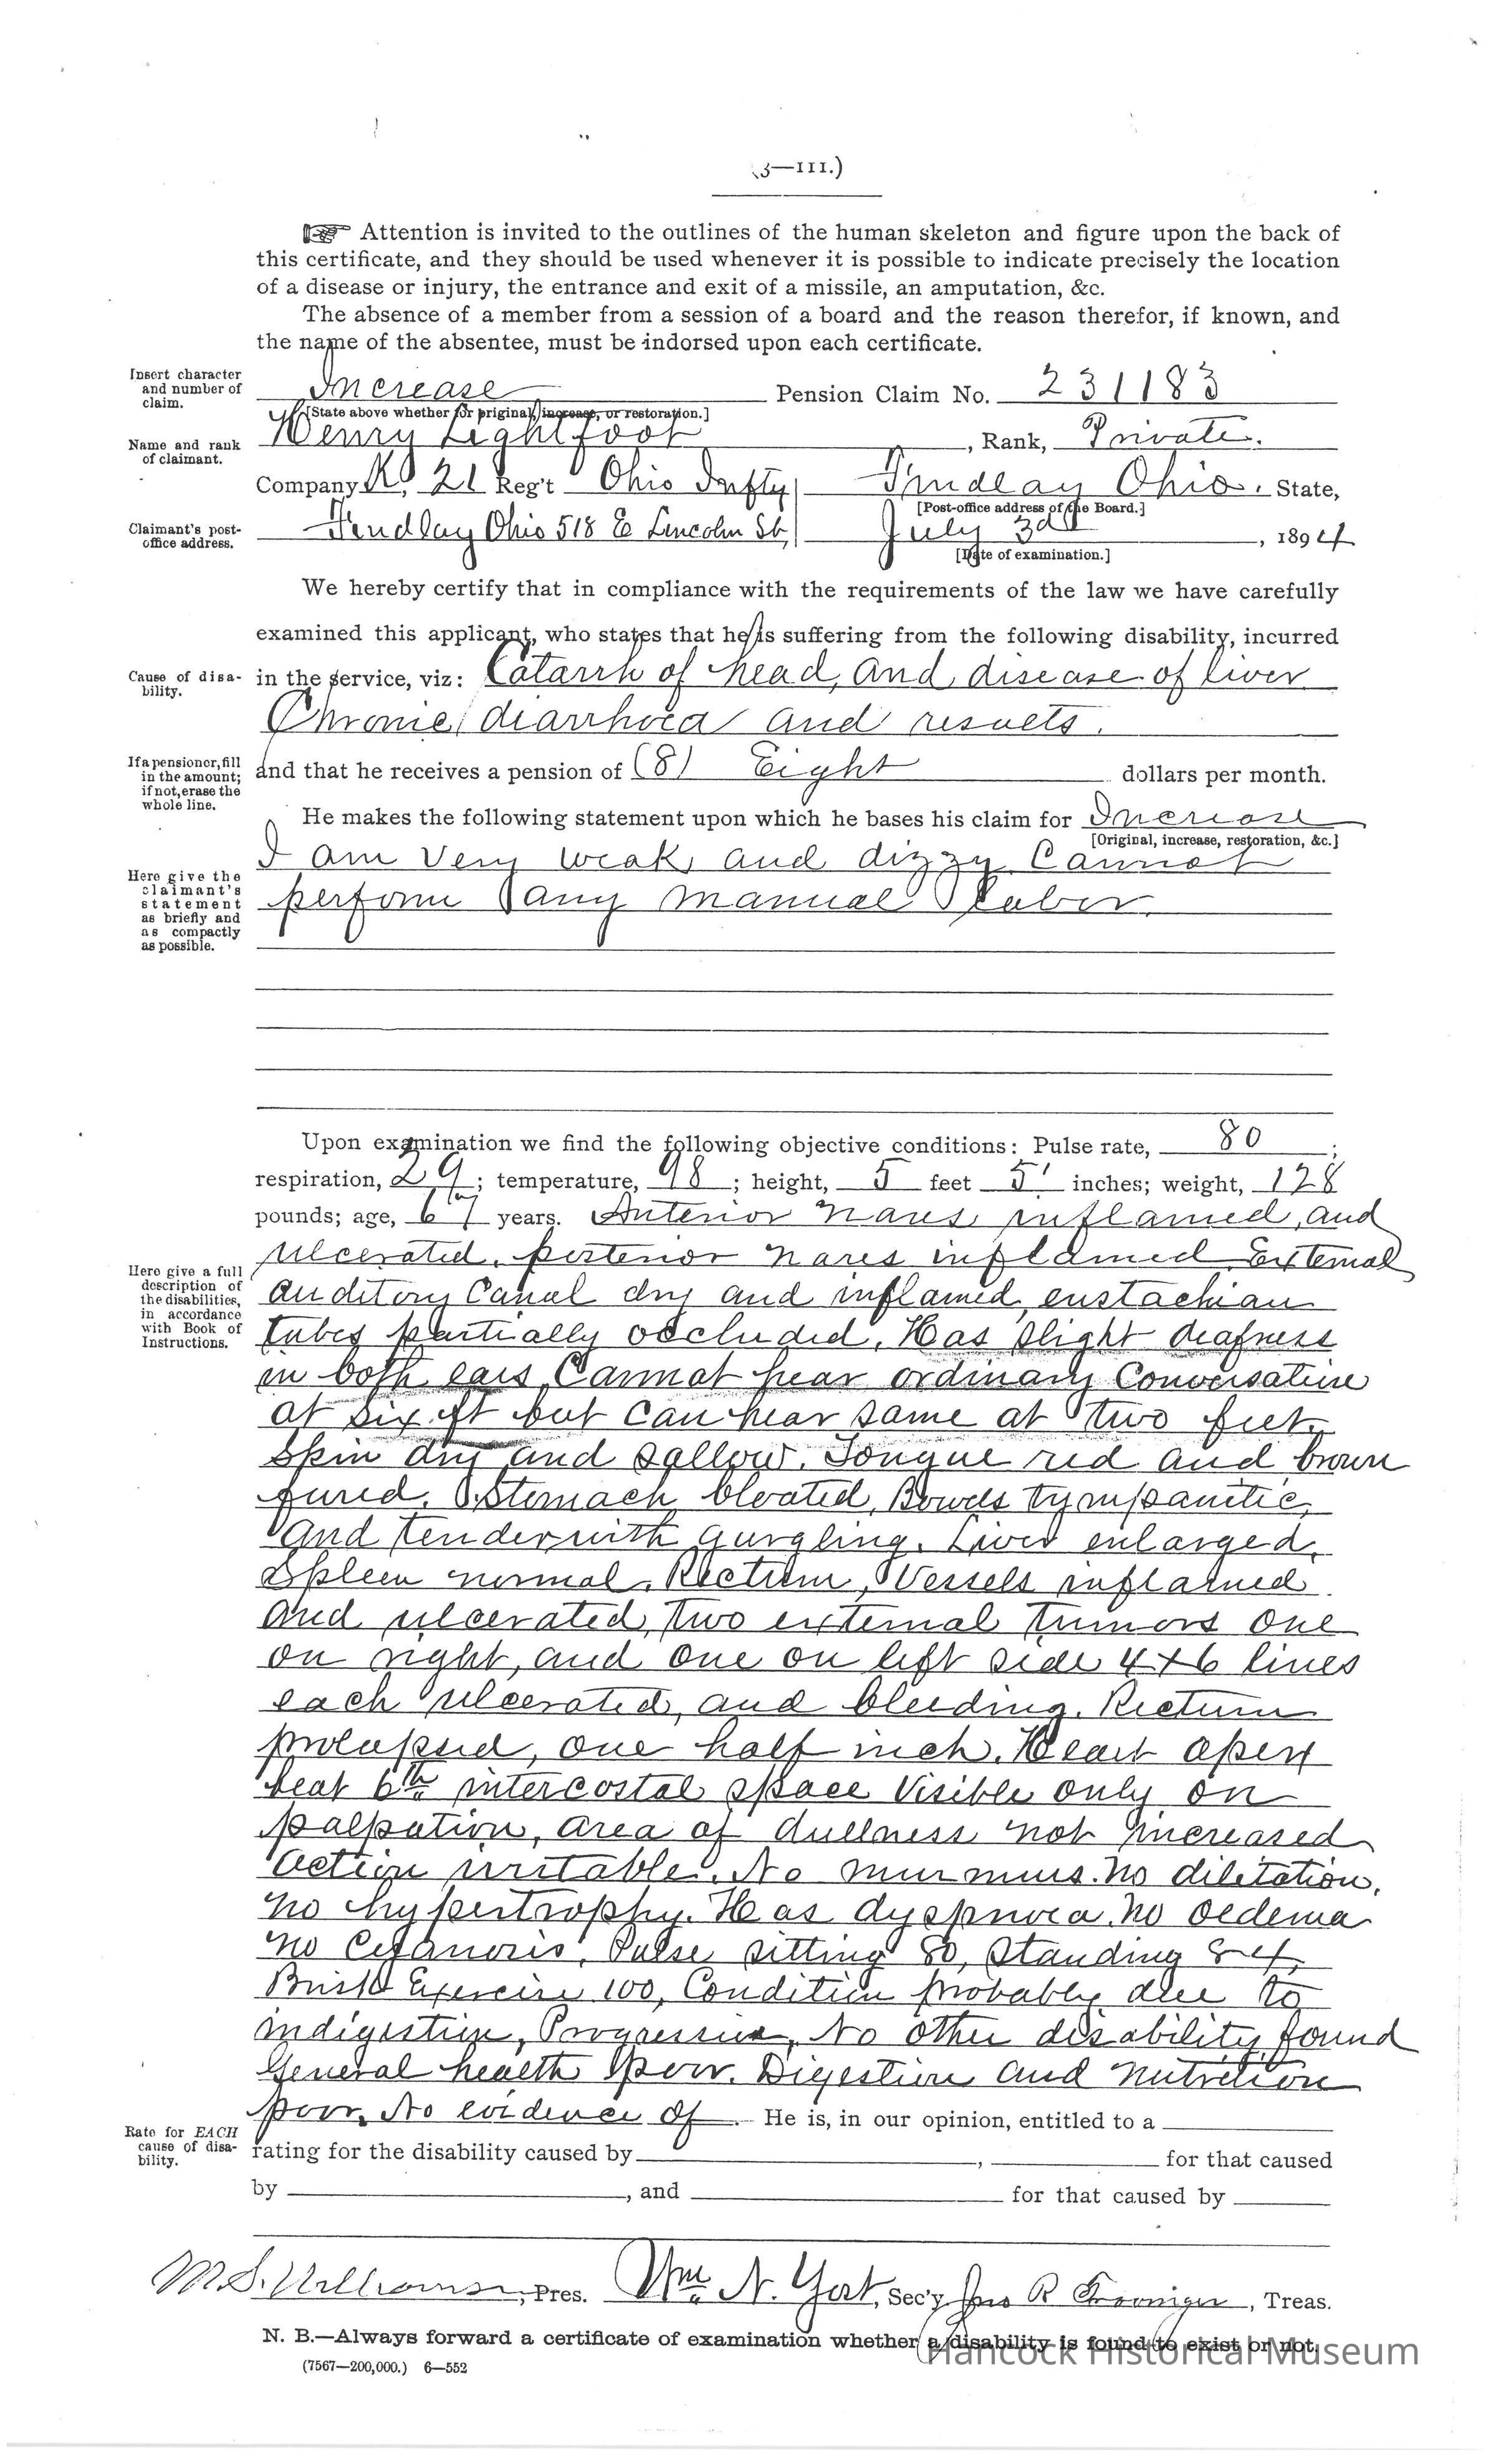 (3—111.)
☞ Attention is invited to the outlines of the human skeleton and figure upon the back of
this certificate, and they should be used whenever it is possible to indicate precisely the location
of a disease or injury, the entrance and exit of a missile, an amputation, &c.
The absence of a member from a session of a board and the reason therefor, if known, and
the name of the absentee, must be indorsed upon each certificate.
Insert character
and number of
claim.
Increase Pension Claim No. 231183
[State above whether for original, increase, or restoration.]
Name and rank
of claimant.
Henry Lightfoot, Rank, Private.
Company K, 21 Reg't Ohio Infty Findlay Ohio. State,
[Post-office address of the Board.]
Claimant's post-
office address.
Findlay Ohio 518 E Lincoln St, July 3d, 1894
[Date of examination.]
We hereby certify that in compliance with the requirements of the law we have carefully
examined this applicant, who states that he is suffering from the following disability, incurred
Cause of disa-
bility.
in the service, viz: Catarrh of head, and disease of liver
Chronic diarrhoea and results.
If a pensioner, fill
in the amount;
if not, erase the
whole line.
and that he receives a pension of (8) Eight dollars per month.
He makes the following statement upon which he bases his claim for Increase
[Original, increase, restoration, &c.]
Here give the
claimant's
statement
as briefly and
as compactly
as possible.
I am very weak and dizzy Cannot
perform any manual labor.
Upon examination we find the following objective conditions: Pulse rate, 80;
respiration, 29; temperature, 98; height, 5 feet 5 inches; weight, 128
pounds; age, 67 years. Anterior nares inflamed, and
ulcerated, posterior nares inflamed External
Here give a full
description of
the disabilities,
in accordance
with Book of
Instructions.
auditory Canal dry and inflamed, eustachian
tubes partially occluded, Has slight deafness
in both ears, Cannot hear ordinary Conversation
at six ft but can hear same at two feet.
Skin dry and sallow. Tongue red and brown
fured. Stomach bloated, Bowels tympanitic,
and tender with gurgling. Liver enlarged,
Spleen normal. Rectum, Vessels inflamed
and ulcerated, two external tumors one
on right, and one on left side 4x6 lines
each ulcerated, and bleeding. Rectum
prolapsed, one half inch. Heart apex
beat 6th intercostal space Visible only on
palpation, area of dullness not increased
action irritable. No murmurs. no dilitation,
no hypertrophy. Has dyspnoea. no oedema
no Cyanosis. Pulse sitting 80, standing 84,
Brisk Exercise 100, Condition probably due to
indigestion, Progressive, No other disability found
General health poor. Digestion and nutrition
poor. No evidence of He is, in our opinion, entitled to a
Rate for EACH
cause of disa-
bility.
rating for the disability caused by , for that caused
by , and for that caused by
M.S. Williams, Pres. Wm. N. Yost, Sec'y Jno R , Treas.
N. B.—Always forward a certificate of examination whether a disability is found to exist or not.
(7567—200,000.) 6—552
Hancock Historical Museum